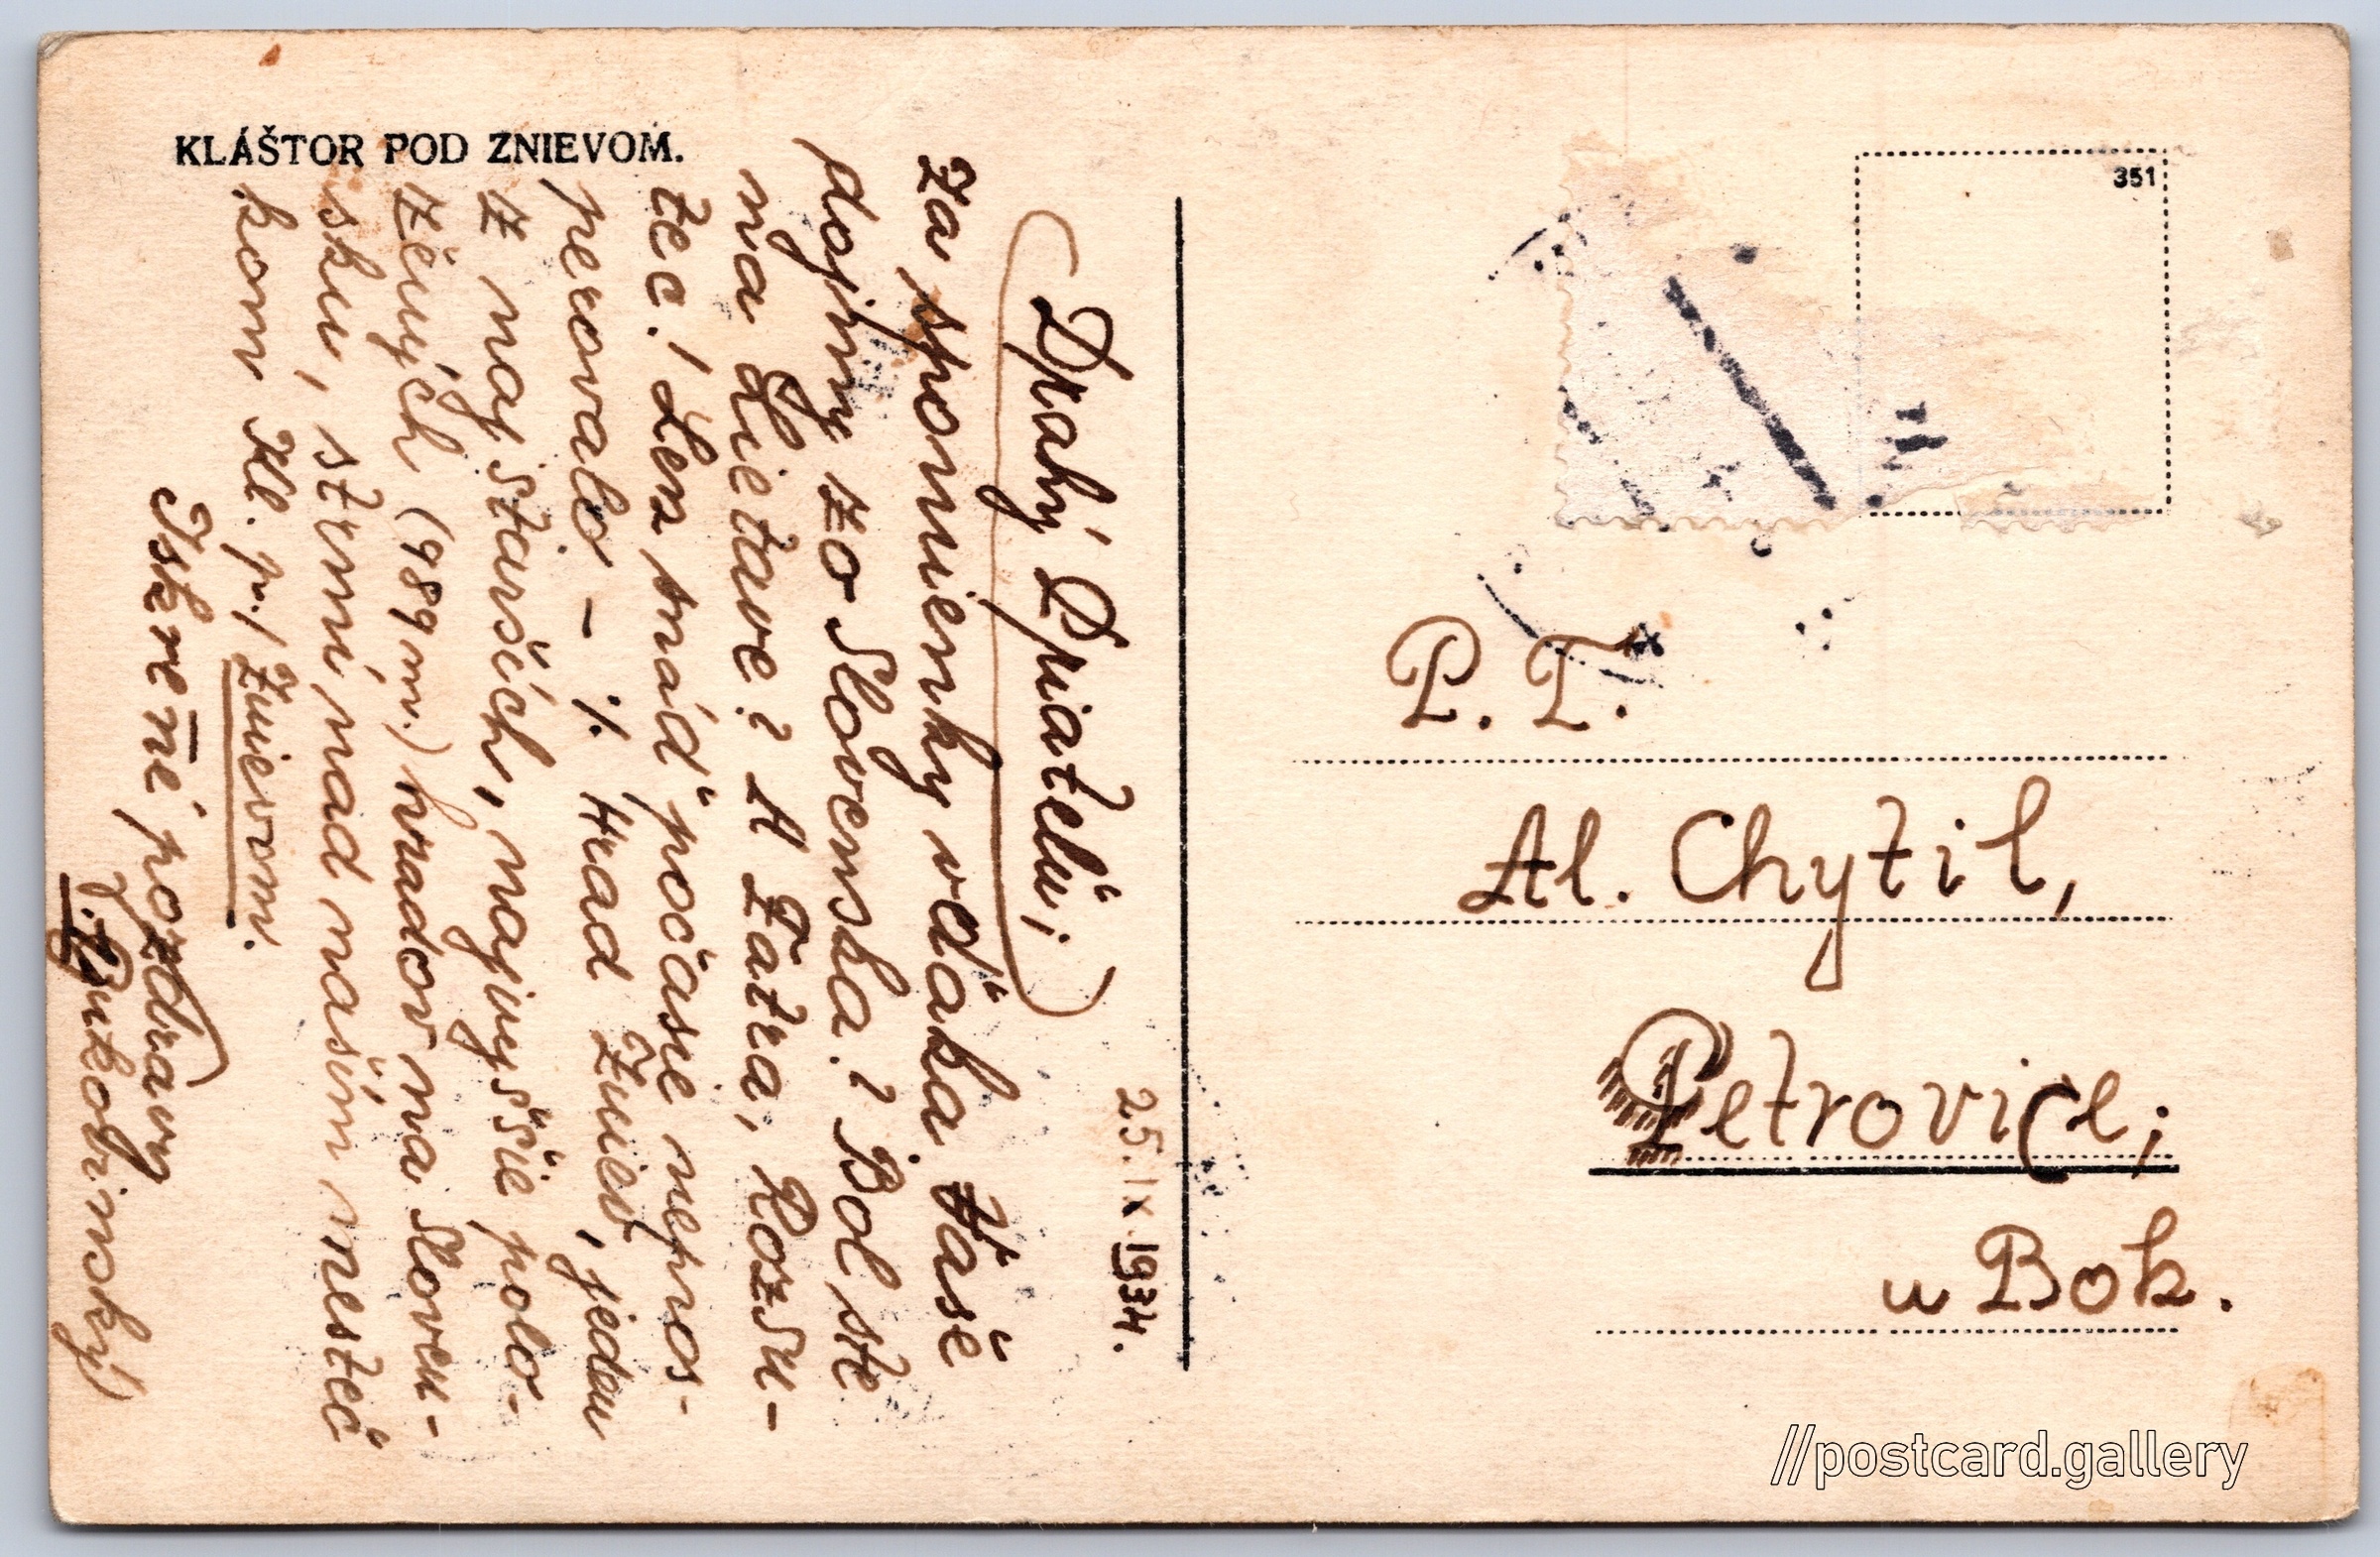 KLÁŠTOR POD ZNIEVOM.
351
25. IX 1934.
Drahý Priateľu;
za spomienky vďaka. Vaše
dojmy zo Slovenska? Bol ste
na Lietave? A Fatra, Rozsu-
tec. / Len snáď počasie nepros-
perovalo – /. Hrad Zniev, jeden
z naj starších, najvyššie polo-
žených (989 m.) hradov na Sloven-
sku, strmí nad našim mesteč
kom Kl. p./ Znievom.
Iskrené pozdravy
P. T.
Al. Chytil,
Petrovice;
u Bok.
//postcard.gallery